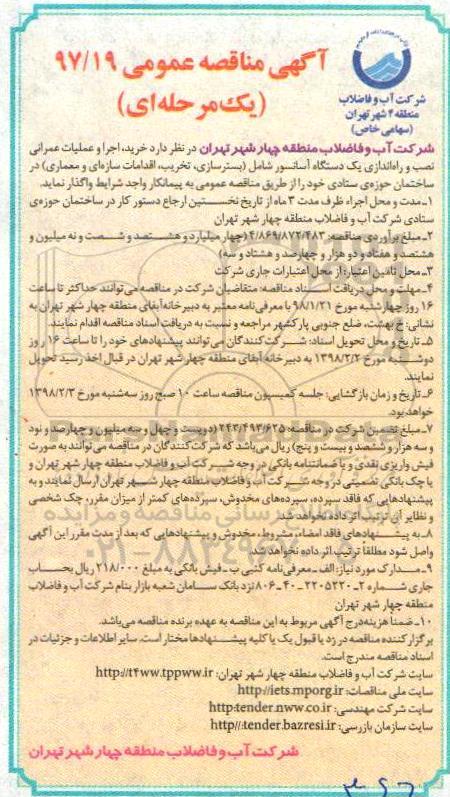 آگهی مناقصه عمومی ۹۷/۱۹
(یک‌مرحله‌ای)
شرکت آب و فاضلاب
منطقه ۴ شهر تهران
(سهامی خاص)
شرکت آب و فاضلاب منطقه چهار شهر تهران در نظر دارد خرید، اجرا و عملیات عمرانی
نصب و راه‌اندازی یک دستگاه آسانسور شامل (بسترسازی، تخریب، اقدامات سازه‌ای و معماری) در
ساختمان حوزه‌ی ستادی خود را از طریق مناقصه عمومی به پیمانکار واجد شرایط واگذار نماید.
۱ـ مدت و محل اجراء ظرف مدت ۳ ماه از تاریخ نخستین ارجاع دستور کار در ساختمان حوزه‌ی
ستادی شرکت آب و فاضلاب منطقه چهار شهر تهران
۲ـ مبلغ برآوردی مناقصه: ۴/۸۶۹/۸۷۲/۴۸۳ (چهار میلیارد و هشتصد و شصت و نه میلیون و
هشتصد و هفتاد و دو هزار و چهارصد و هشتاد و سه)
۳ـ محل تأمین اعتبار: از محل اعتبارات جاری شرکت
۴ـ مهلت و محل دریافت اسناد مناقصه: متقاضیان شرکت در مناقصه می‌توانند حداکثر تا ساعت
۱۶ روز چهارشنبه مورخ ۹۸/۱/۲۱ با معرفی‌نامه معتبر به دبیرخانه آبفای منطقه چهار شهر تهران به
نشانی: خ بهشت، ضلع جنوبی پارک شهر مراجعه و نسبت به دریافت اسناد مناقصه اقدام نمایند.
۵ـ تاریخ و محل تحویل اسناد: شرکت‌کنندگان می‌توانند پیشنهادهای خود را تا ساعت ۱۶ روز
دوشنبه مورخ ۱۳۹۸/۲/۲ به دبیرخانه آبفای منطقه چهار شهر تهران در قبال اخذ رسید تحویل
نمایند.
۶ـ تاریخ و زمان بازگشایی: جلسه کمیسیون مناقصه ساعت ۱۰ صبح روز سه‌شنبه مورخ ۱۳۹۸/۲/۳
خواهد بود.
۷ـ مبلغ تضمین شرکت در مناقصه: ۲۴۳/۴۹۳/۶۲۵ (دویست و چهل و سه میلیون و چهارصد و نود
و سه هزار و ششصد و بیست و پنج) ریال می‌باشد که شرکت‌کنندگان در مناقصه می‌توانند به صورت
فیش واریزی نقدی و یا ضمانتنامه بانکی در وجه شرکت آب و فاضلاب منطقه چهار شهر تهران و
یا چک بانکی تضمینی در وجه شرکت آب و فاضلاب منطقه چهار شهر تهران ارسال نمایند و به
پیشنهادهایی که فاقد سپرده، سپرده‌های مخدوش، سپرده‌های کمتر از میزان مقرر، چک شخصی
و نظایر آن ترتیب اثر داده نخواهد شد.
۸ـ به پیشنهادهای فاقد امضاء، مشروط، مخدوش و پیشنهادهایی که بعد از مدت مقرر این آگهی
واصل شود مطلقا ترتیب اثر داده نخواهد شد.
۹ـ مدارک مورد نیاز: الف ـ معرفی‌نامه کتبی ب ـ فیش بانکی به مبلغ ۲۱۸/۰۰۰ ریال بحساب
جاری شماره ۲ـ ۲۲۰۵۲۲۰ـ ۴۰ـ ۸۰۶ نزد بانک سامان شعبه بازار بنام شرکت آب و فاضلاب
منطقه چهار شهر تهران
۱۰ـ ضمنا هزینه درج آگهی مربوط به این مناقصه به عهده برنده مناقصه می‌باشد.
برگزارکننده مناقصه در رد یا قبول یک یا کلیه پیشنهادها مختار است. سایر اطلاعات و جزئیات در
اسناد مناقصه مندرج است.
سایت شرکت آب و فاضلاب منطقه چهار شهر تهران: http://t4ww.tppww.ir
سایت ملی مناقصات: http://iets.mporg.ir
سایت شرکت مهندسی: http:tender.nww.co.ir
سایت سازمان بازرسی: http//:tender.bazresi.ir
شرکت آب و فاضلاب منطقه چهار شهر تهران